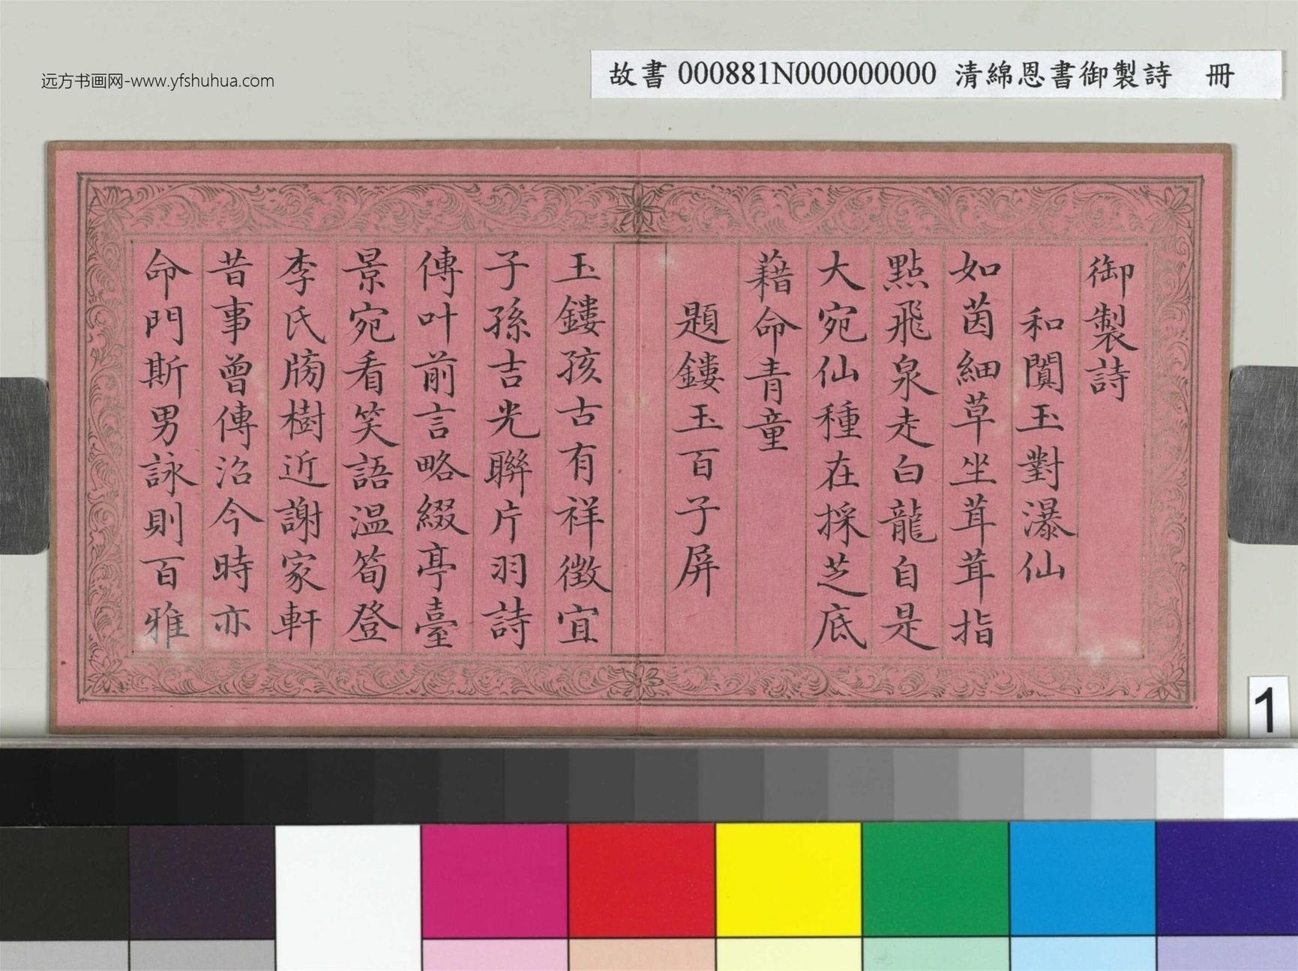 远方书画网-www.yfshuhua.com
故書 000881N000000000 清綿恩書御製詩 冊
御製詩
和闐玉對瀑仙
如茵細草坐茸茸指
點飛泉走白龍自是
大宛仙種在採芝底
藉命青童
題鏤玉百子屏
玉鏤孩古有祥徵宜
子孫吉光聯片羽詩
傳叶前言略綴亭臺
景宛看笑語温筍登
李氏牓樹近謝家軒
昔事曾傳沿今時亦
命門斯男詠則百雅
1